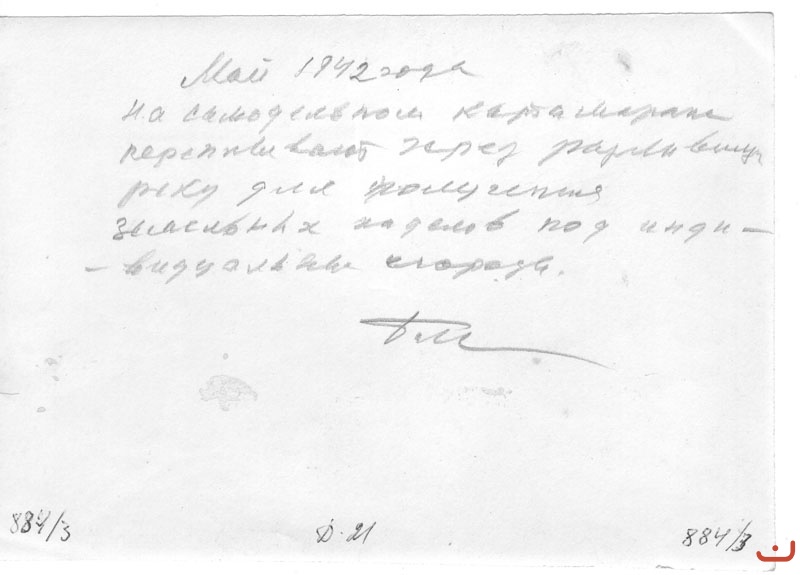 Май 1942 года
На самодельном катамаране
переплывают через разлившую
реку для получения
земельных наделов под инди-
-видуальные огороды.
884/3
Д-21
884/3